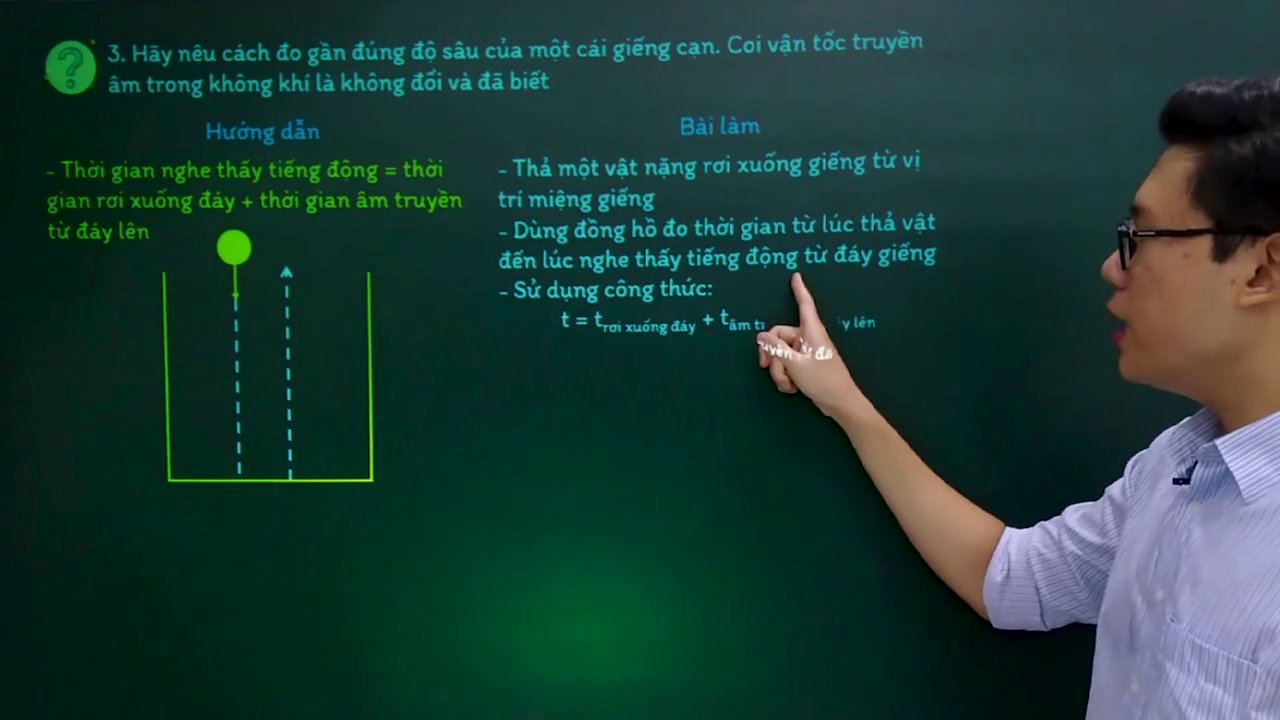 3. Hãy nêu cách đo gần đúng độ sâu của một cái giếng cạn. Coi vận tốc truyền
âm trong không khí là không đổi và đã biết
Hướng dẫn
- Thời gian nghe thấy tiếng động = thời
gian rơi xuống đáy + thời gian âm truyền
từ đáy lên
Bài làm
- Thả một vật nặng rơi xuống giếng từ vị
trí miệng giếng
- Dùng đồng hồ đo thời gian từ lúc thả vật
đến lúc nghe thấy tiếng động từ đáy giếng
- Sử dụng công thức:
t = t rơi xuống đáy + t âm lên